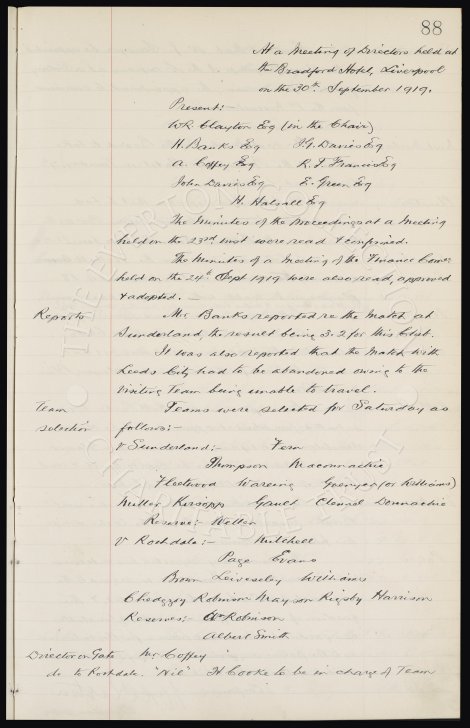 88
At a Meeting of Directors held at
the Bradford Hotel, Liverpool
on the 30th September 1919.
Present:
W.R. Clayton Esq (in the Chair)
H. Banks Esq J.G. Davies Esq
A. Coffey Esq R.J. Francis Esq
John Davies Esq E. Green Esq
H. Halsall Esq
The Minutes of the Proceedings at a Meeting
held on the 23rd inst were read & confirmed.
The Minutes of a Meeting of the Finance Comee
held on the 24th Sept 1919 were also read, approved
& adopted.
Reports Mr Banks reported re the Match at
Sunderland, the result being 3-2 for this Club.
It was also reported that the Match with
Leeds City had to be abandoned owing to the
visiting Team being unable to travel.
Team Teams were selected for Saturday as
selection follows:-
v Sunderland:- Fern
Thompson Maconnachie
Fleetwood Wareing Grenyer (or Williams)
Miller Kirsopp Gault Clennell Donnachie
Reserve:- Weller
v Rochdale:- Mitchell
Page Evans
Brown Leivesley Williams
Chedgzoy Robinson Mayson Rigsby Harrison
Reserves:- Wm Robinson
Albert Smith
Director on Gate Mr Coffey
do to Rochdale. "Nil" H Cooke to be in charge of Team